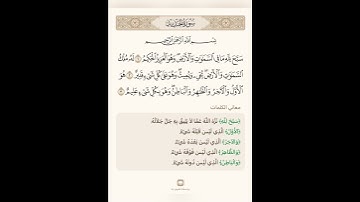 سُورَةُ الحَدِيدِ
بِسْمِ اللَّهِ الرَّحْمَٰنِ الرَّحِيمِ
سَبَّحَ لِلَّهِ مَا فِي السَّمَاوَاتِ وَالْأَرْضِ وَهُوَ الْعَزِيزُ الْحَكِيمُ ١ لَهُ مُلْكُ
السَّمَاوَاتِ وَالْأَرْضِ يُحْيِي وَيُمِيتُ وَهُوَ عَلَىٰ كُلِّ شَيْءٍ قَدِيرٌ ٢ هُوَ
الْأَوَّلُ وَالْآخِرُ وَالظَّاهِرُ وَالْبَاطِنُ وَهُوَ بِكُلِّ شَيْءٍ عَلِيمٌ ٣
معاني الكلمات
﴿سَبَّحَ لِلَّهِ﴾ نَزَّهَ اللَّهَ عَمَّا لَا يَلِيقُ بِهِ جَلَّ جَلَالُهُ
﴿الْأَوَّلُ﴾ الَّذِي لَيْسَ قَبْلَهُ شَيْءٌ
﴿وَالْآخِرُ﴾ الَّذِي لَيْسَ بَعْدَهُ شَيْءٌ
﴿وَالظَّاهِرُ﴾ الَّذِي لَيْسَ فَوْقَهُ شَيْءٌ
﴿وَالْبَاطِنُ﴾ الَّذِي لَيْسَ دُونَهُ شَيْءٌ